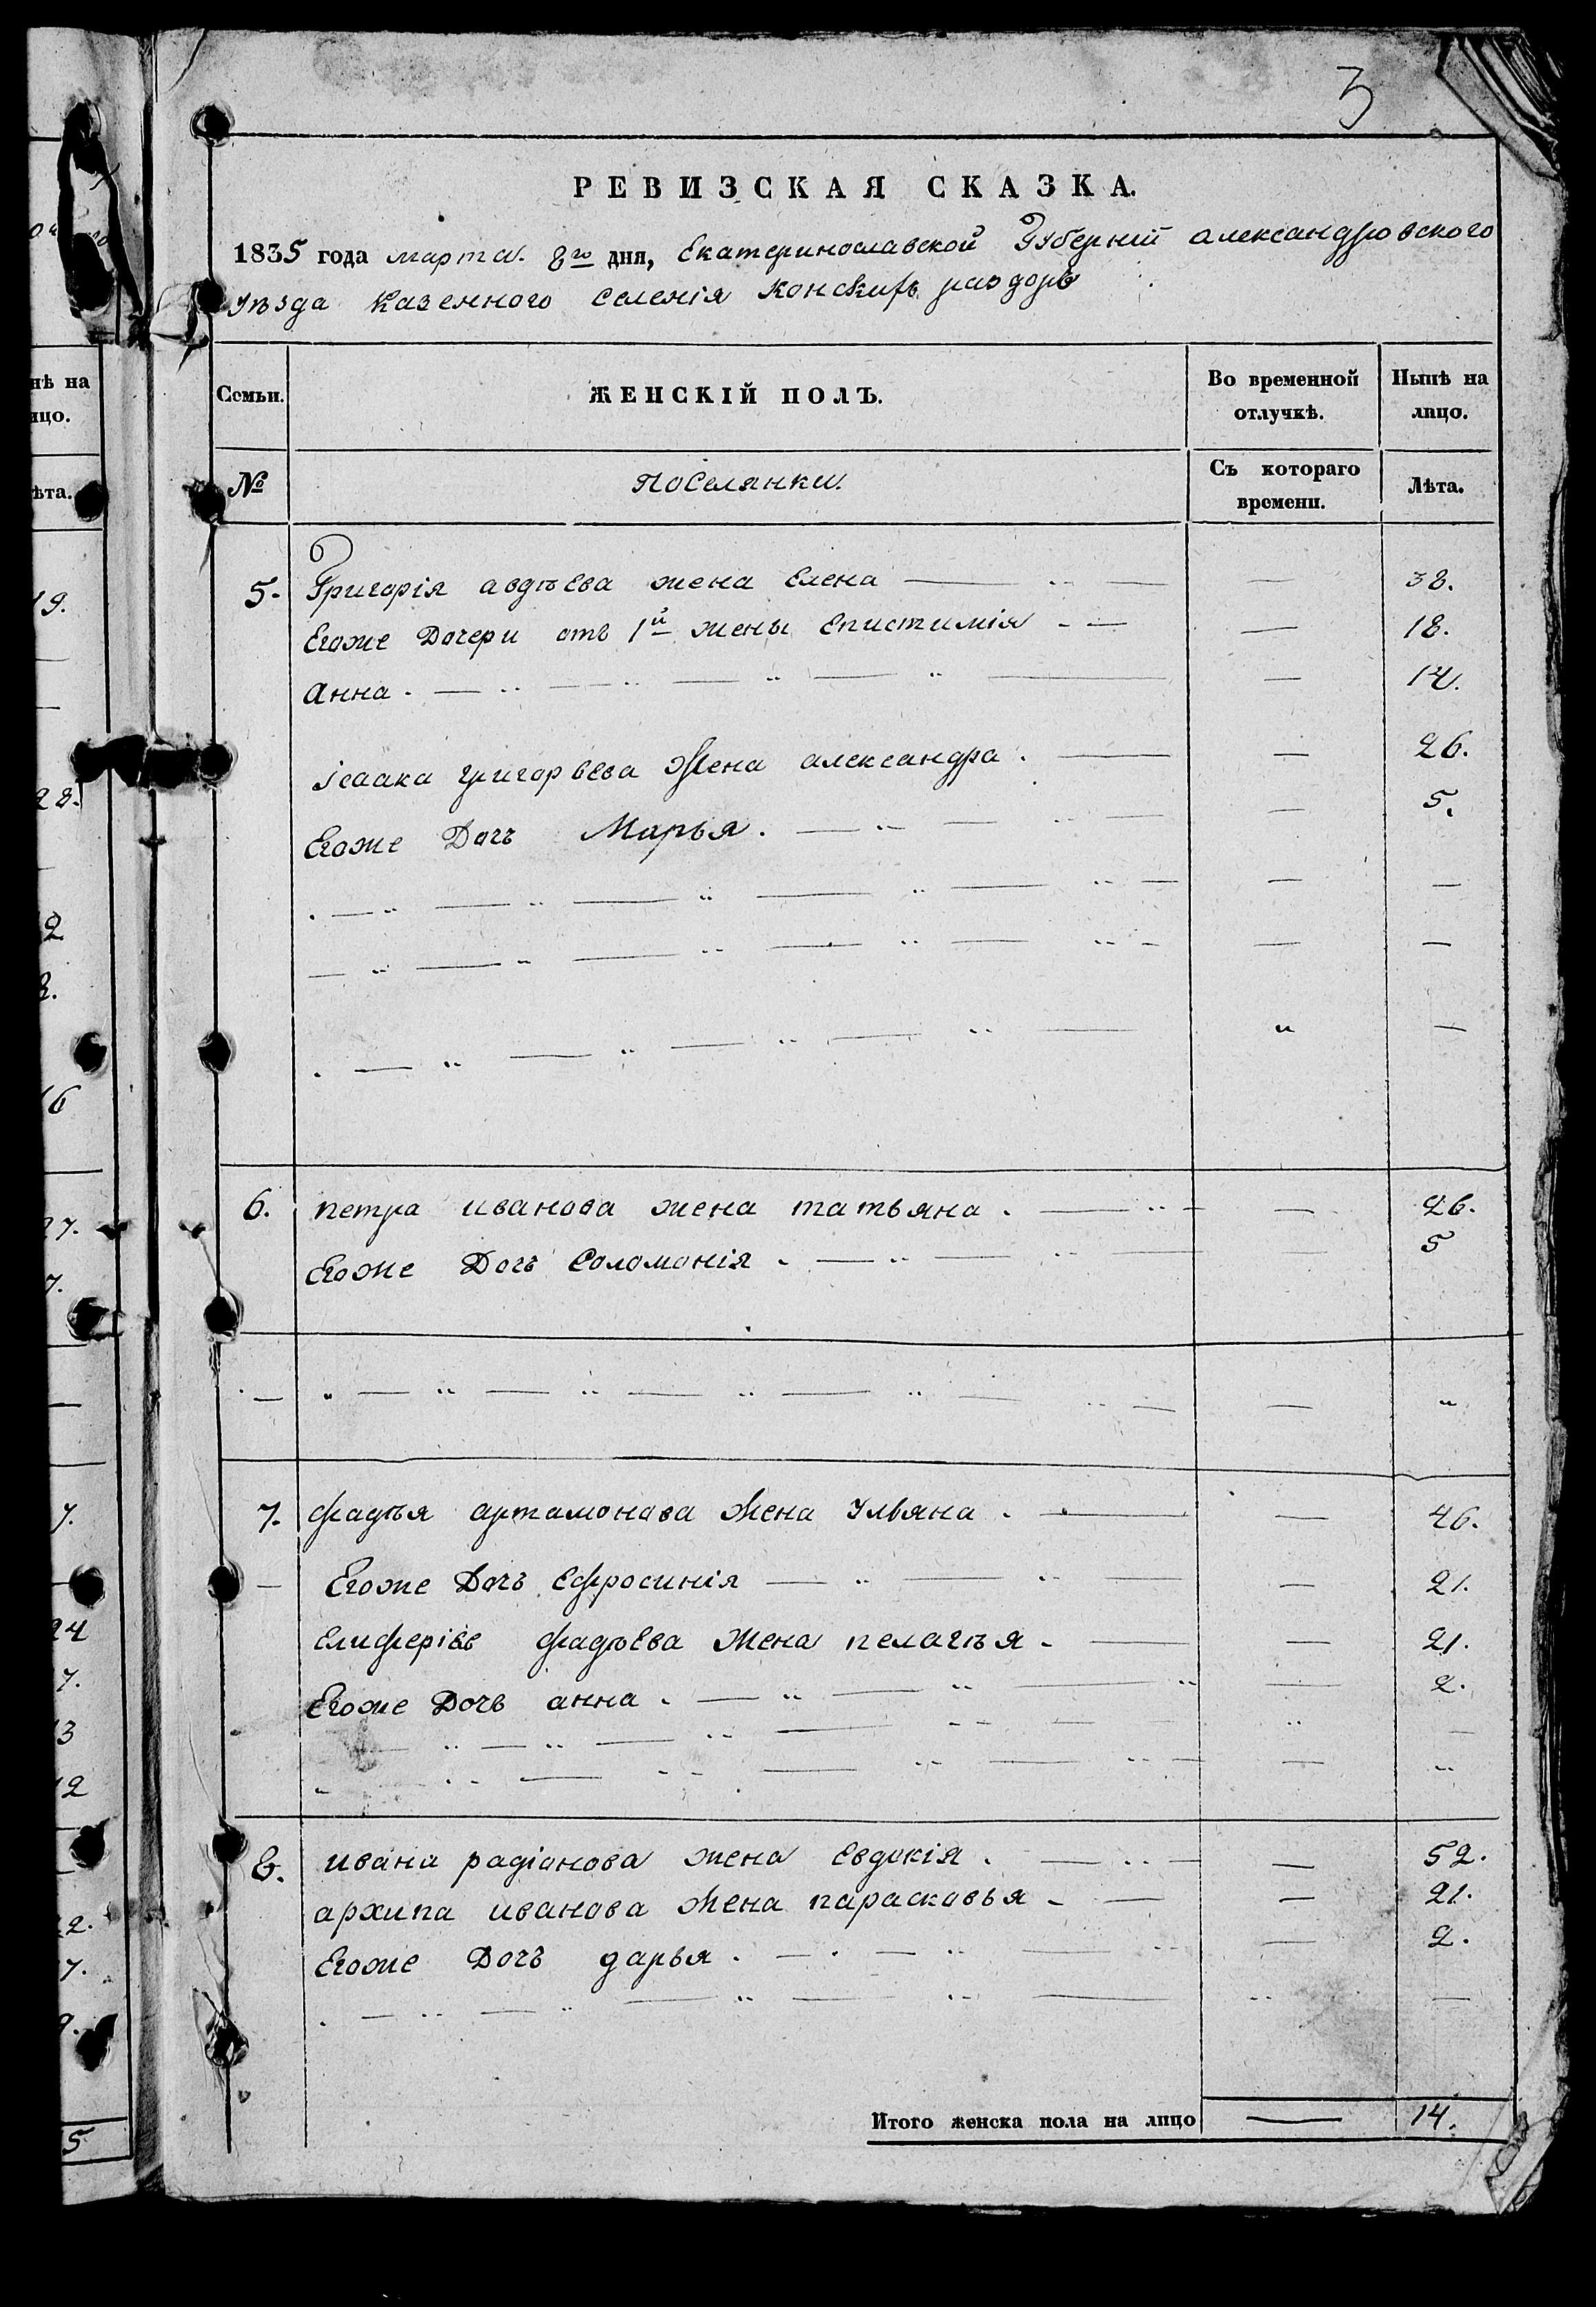 3
РЕВИЗСКАЯ СКАЗКА.
1835 года марта 8го дня, Екатеринославской Губерніи александровского
Уѣзда Казенного Селенія Конскихъ раздоръ
Семьи. ЖЕНСКІЙ ПОЛЪ. Во временной отлучкѣ. Нынѣ на лицо.
№ Поселянки. Съ котораго времени. Лѣта.
5. Григорія авдѣева жена Елена — 38.
Егоже Дочери отъ 1й жены Епистимія — 18.
Анна — 14.
Ісаака григорьева Жена александра — 26.
Егоже Дочь Марья — 5.
6. петра иванова жена татьяна — 26.
Егоже Дочь Соломонія — 5
7. фадѣя артамонова Жена Ульяна — 46.
Егоже Дочь Ефросинія — 21.
Елиферія фадѣева Жена пелагѣя — 21.
Егоже Дочь анна — 2.
8. ивана радіонова жена Евдокія — 52.
архипа иванова Жена парасковья — 21.
Егоже Дочь дарья — 2.
Итого женска пола на лицо — 14.
нѣ на
ицо.
ѣта.
19.
28.
2
2.
16
27.
7.
7.
24
7.
13
12
22.
7.
9.
5